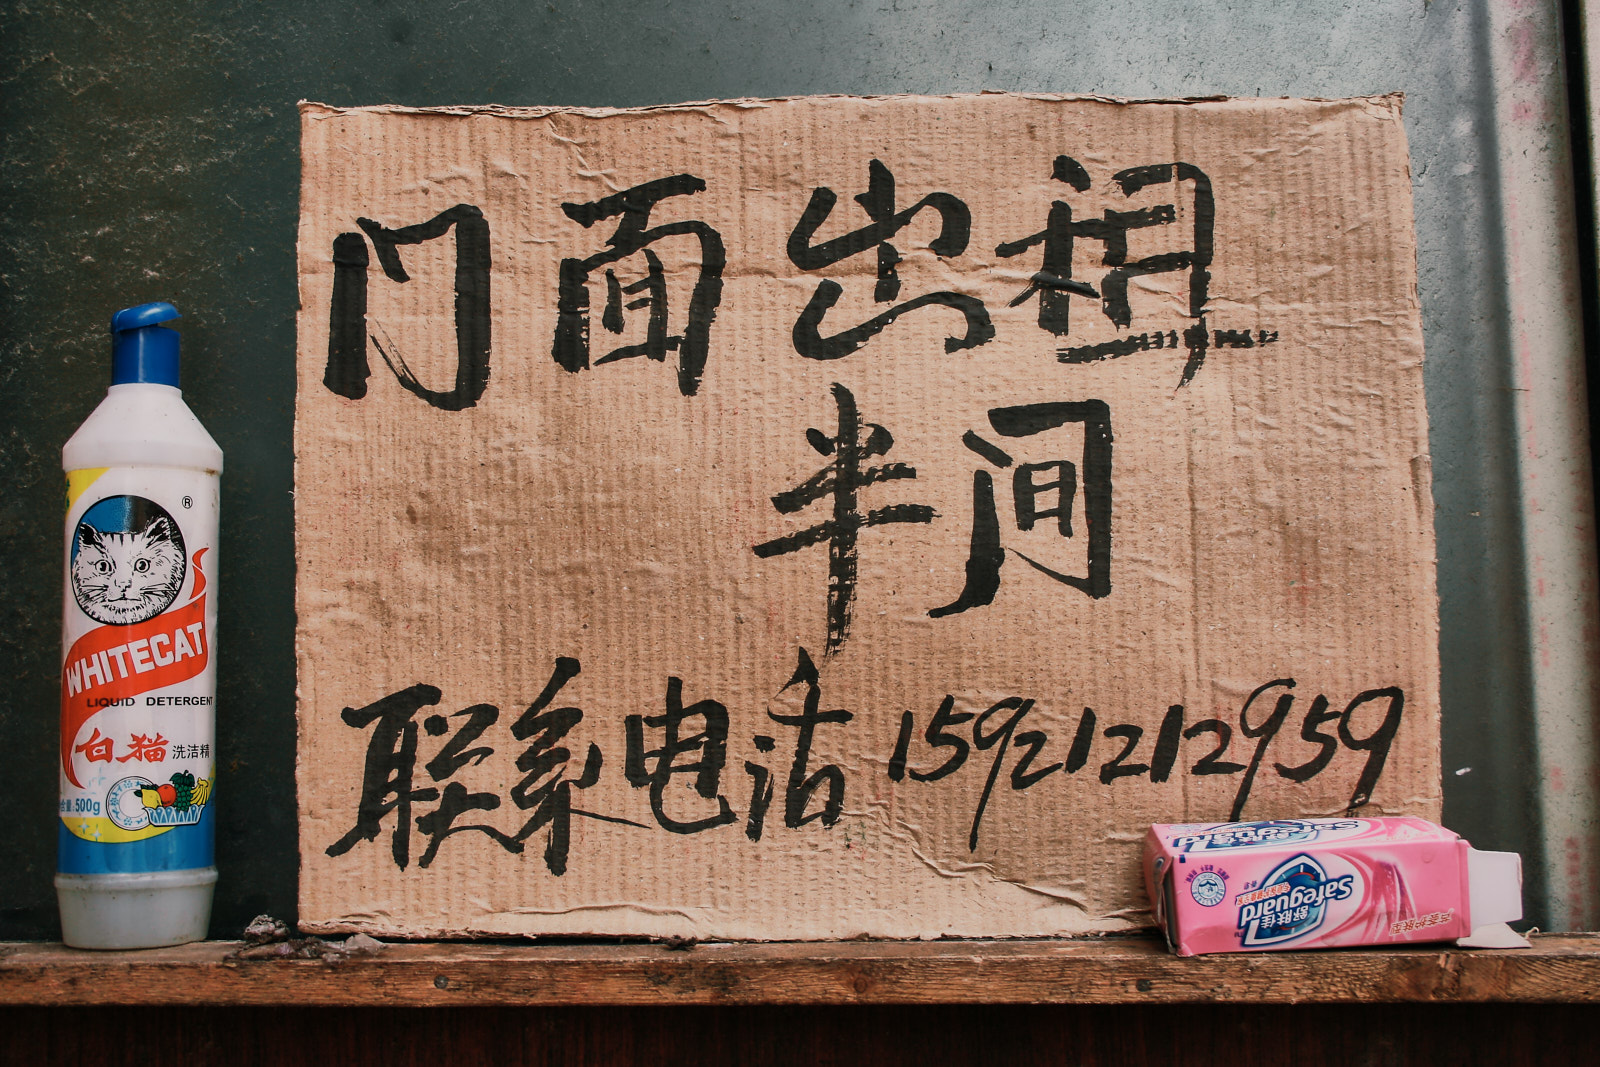 门面出租
半间
联系电话 15921212959
®
WHITECAT
LIQUID DETERGENT
白猫 洗洁精
500g
Safeguard
Safeguard
舒肤佳